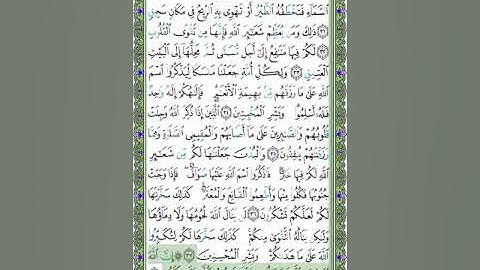 ٱلسَّمَآءِ فَتَخْطَفُهُ ٱلطَّيْرُ أَوْ تَهْوِى بِهِ ٱلرِّيحُ فِى مَكَانٍ سَحِيقٍ
٣١ ذَٰلِكَ وَمَن يُعَظِّمْ شَعَـٰٓئِرَ ٱللَّهِ فَإِنَّهَا مِن تَقْوَى ٱلْقُلُوبِ
٣٢ لَكُمْ فِيهَا مَنَـٰفِعُ إِلَىٰٓ أَجَلٍ مُّسَمًّى ثُمَّ مَحِلُّهَآ إِلَى ٱلْبَيْتِ
ٱلْعَتِيقِ ٣٣ وَلِكُلِّ أُمَّةٍ جَعَلْنَا مَنسَكًا لِّيَذْكُرُوا۟ ٱسْمَ
ٱللَّهِ عَلَىٰ مَا رَزَقَهُم مِّنۢ بَهِيمَةِ ٱلْأَنْعَـٰمِ ۗ فَإِلَـٰهُكُمْ إِلَـٰهٌ وَٰحِدٌ
فَلَهُۥٓ أَسْلِمُوا۟ ۗ وَبَشِّرِ ٱلْمُخْبِتِينَ ٣٤ ٱلَّذِينَ إِذَا ذُكِرَ ٱللَّهُ وَجِلَتْ
قُلُوبُهُمْ وَٱلصَّـٰبِرِينَ عَلَىٰ مَآ أَصَابَهُمْ وَٱلْمُقِيمِى ٱلصَّلَوٰةِ وَمِمَّا
رَزَقْنَـٰهُمْ يُنفِقُونَ ٣٥ وَٱلْبُدْنَ جَعَلْنَـٰهَا لَكُم مِّن شَعَـٰٓئِرِ
ٱللَّهِ لَكُمْ فِيهَا خَيْرٌ ۖ فَٱذْكُرُوا۟ ٱسْمَ ٱللَّهِ عَلَيْهَا صَوَآفَّ ۖ فَإِذَا وَجَبَتْ
جُنُوبُهَا فَكُلُوا۟ مِنْهَا وَأَطْعِمُوا۟ ٱلْقَانِعَ وَٱلْمُعْتَرَّ ۚ كَذَٰلِكَ سَخَّرْنَـٰهَا
لَكُمْ لَعَلَّكُمْ تَشْكُرُونَ ٣٦ لَن يَنَالَ ٱللَّهَ لُحُومُهَا وَلَا دِمَآؤُهَا
وَلَـٰكِن يَنَالُهُ ٱلتَّقْوَىٰ مِنكُمْ ۚ كَذَٰلِكَ سَخَّرَهَا لَكُمْ لِتُكَبِّرُوا۟
ٱللَّهَ عَلَىٰ مَا هَدَىٰكُمْ ۗ وَبَشِّرِ ٱلْمُحْسِنِينَ ٣٧ إِنَّ ٱللَّهَ